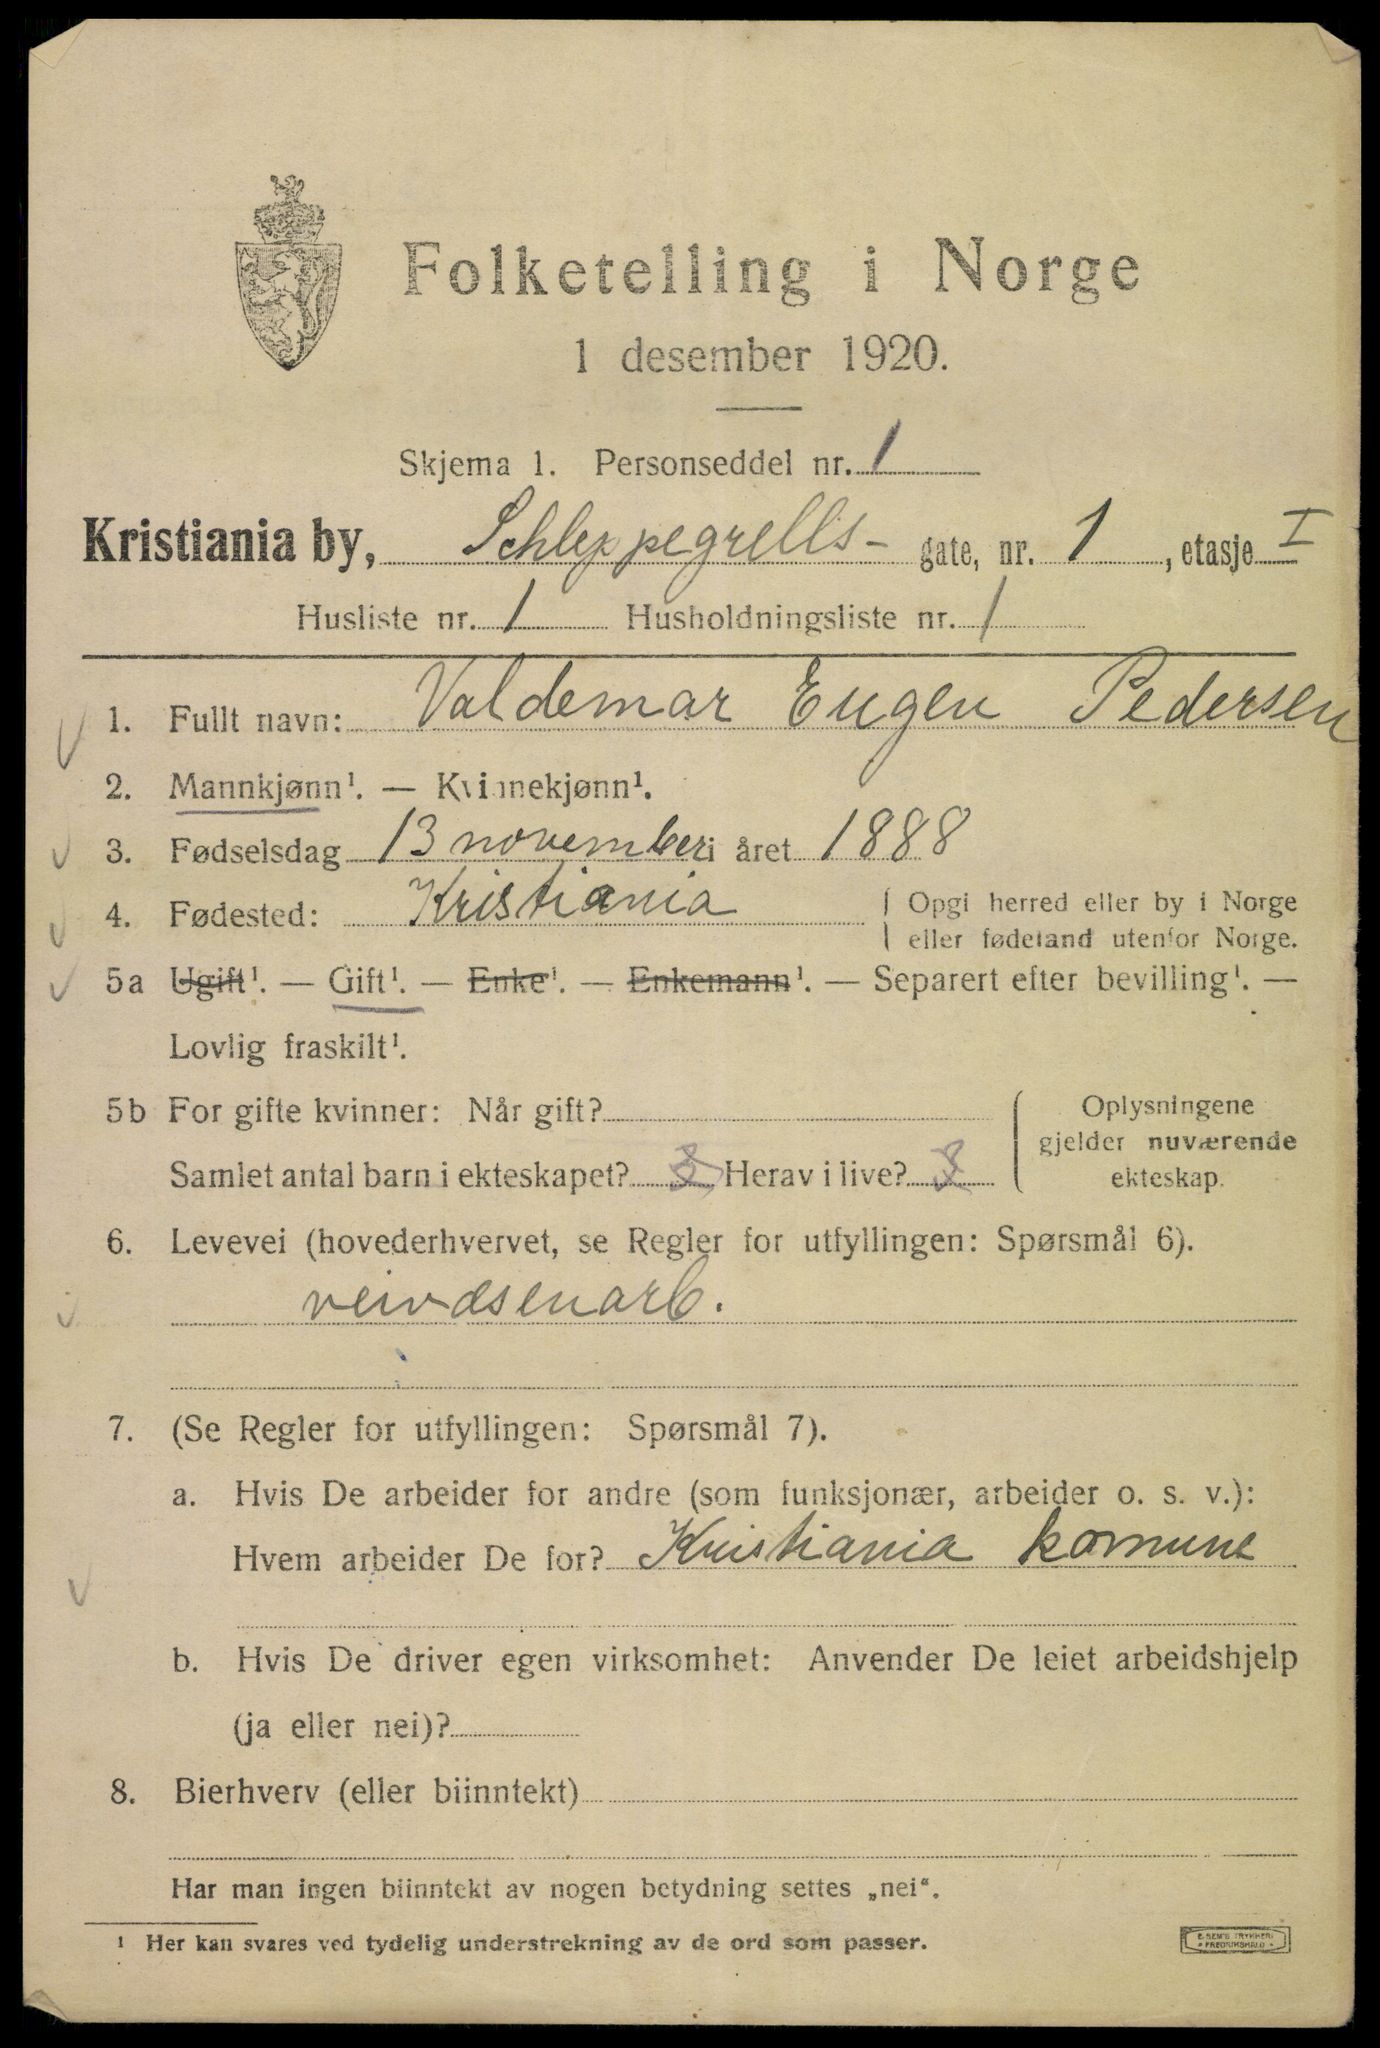 Folketelling i Norge
1 desember 1920.
Skjema 1. Personseddel nr. 1
Kristiania by, Schleppegrells- gate, nr. 1, etasje I
Husliste nr. 1 Husholdningsliste nr. 1
1. Fullt navn: Valdemar Eugen Pedersen
2. Mannkjønn¹. — Kvinnekjønn¹.
3. Fødselsdag 13 november i året 1888
4. Fødested: Kristiania Opgi herred eller by i Norge
eller fødeland utenfor Norge.
5a Ugift¹. — Gift¹. — Enke¹. — Enkemann¹. — Separert efter bevilling¹. —
Lovlig fraskilt¹.
5b For gifte kvinner: Når gift? Oplysningene
gjelder nuværende
Samlet antal barn i ekteskapet? 3 Herav i live? 3 ekteskap.
6. Levevei (hovederhvervet, se Regler for utfyllingen: Spørsmål 6).
veivæsenarb.
7. (Se Regler for utfyllingen: Spørsmål 7).
a. Hvis De arbeider for andre (som funksjonær, arbeider o. s. v.):
Hvem arbeider De for? Kristiania komune
b. Hvis De driver egen virksomhet: Anvender De leiet arbeidshjelp
(ja eller nei)?
8. Bierhverv (eller biinntekt)
Har man ingen biinntekt av nogen betydning settes „nei“.
¹ Her kan svares ved tydelig understrekning av de ord som passer.
E. SEM'S TRYKKERI
FREDRIKSHALD